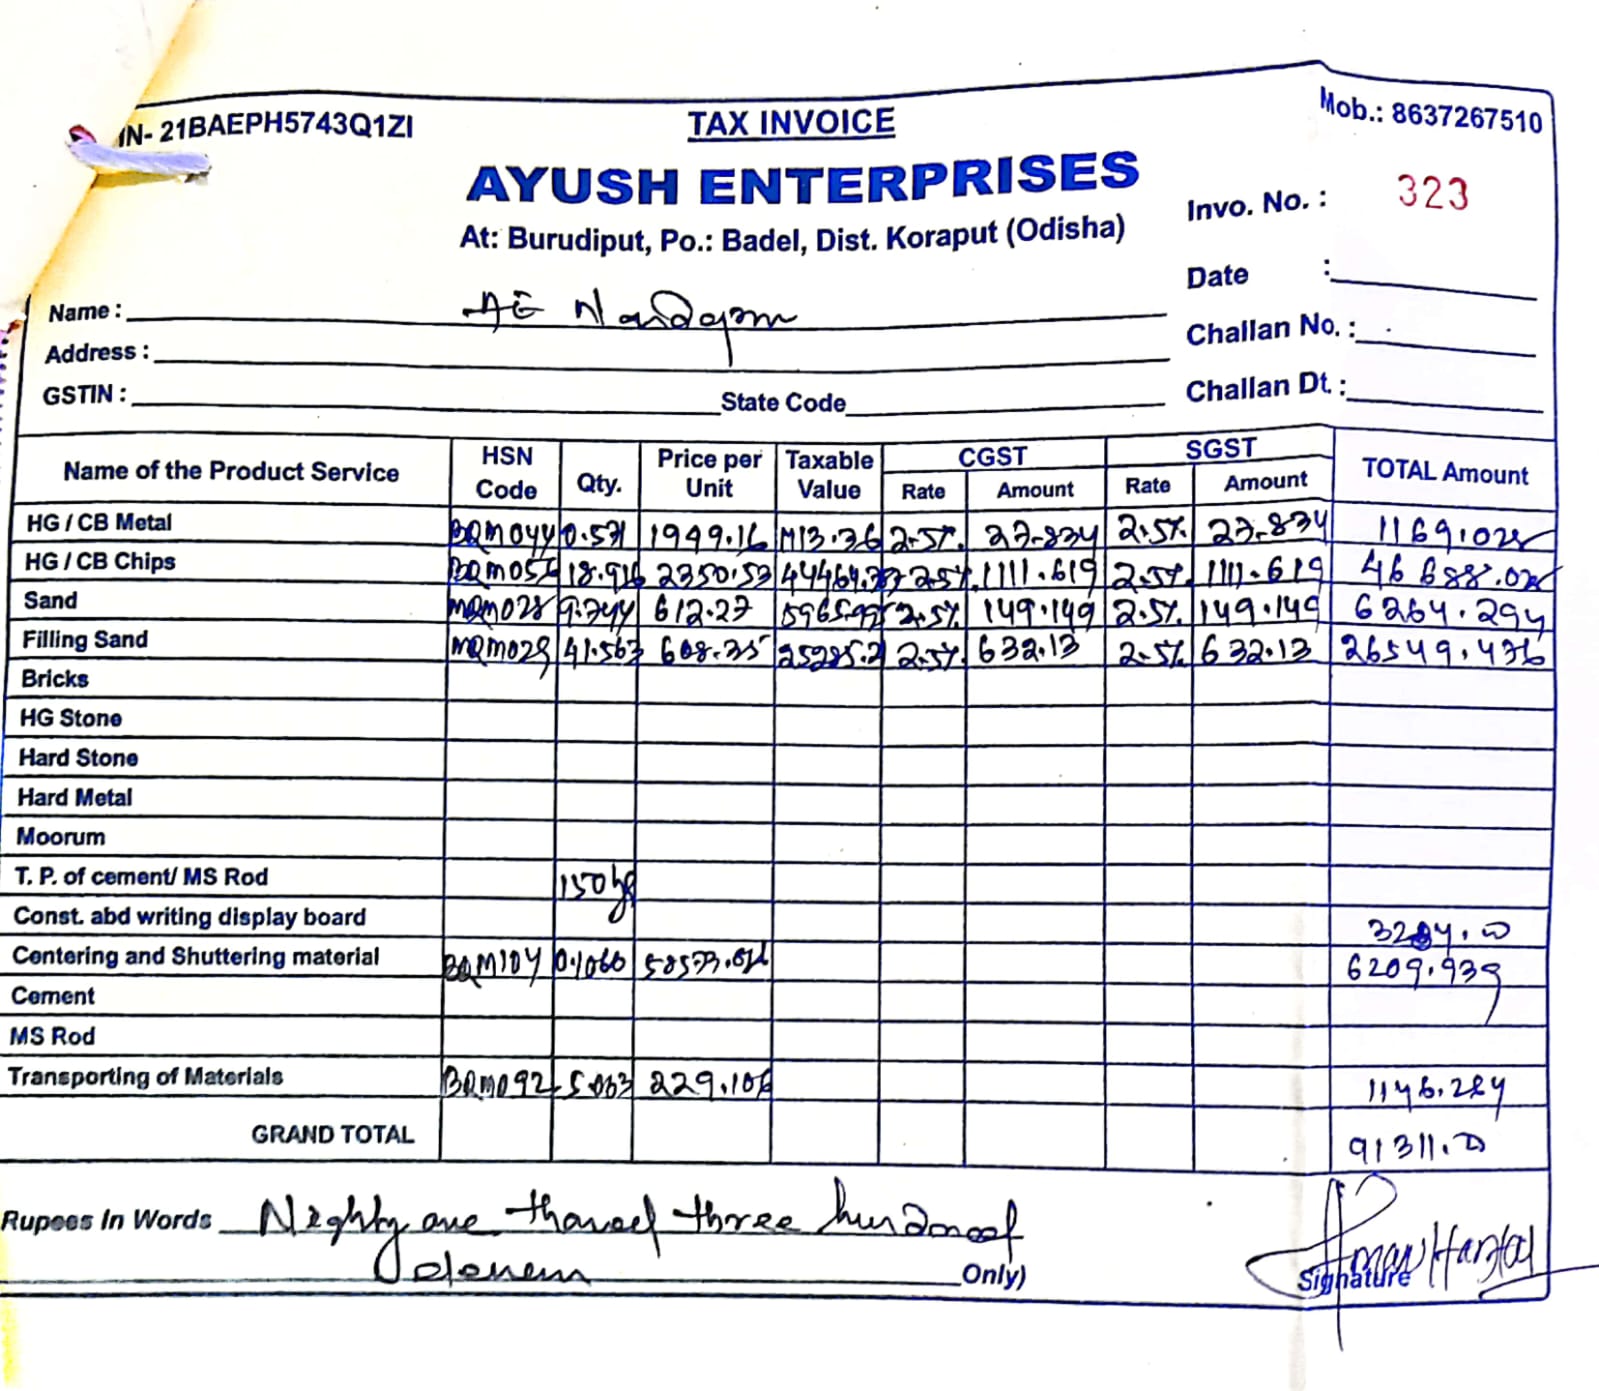 IN- 21BAEPH5743Q1ZI
TAX INVOICE
Mob.: 8637267510
AYUSH ENTERPRISES
Invo. No. : 323
At: Burudiput, Po.: Badel, Dist. Koraput (Odisha)
Date :
Name : AE
Challan No. :
Address :
GSTIN : State Code
Challan Dt. :
Name of the Product Service HSN Code Qty. Price per Unit Taxable Value CGST Rate Amount SGST Rate Amount TOTAL Amount
HG / CB Metal BRM044 0.571 1949.16 1113.36 2.5% 27.834 2.5% 27.834 1169.028
HG / CB Chips 18.916 2350.53 2.5% 1111.619 2.5% 1111.619 46688.02
Sand MRM028 9.744 612.27 2.5% 149.149 2.5% 149.149 6264.294
Filling Sand MRM029 41.563 608.35 25285.2 2.5% 632.13 2.5% 632.13 26549.476
Bricks
HG Stone
Hard Stone
Hard Metal
Moorum
T. P. of cement/ MS Rod
Const. abd writing display board 3284.00
Centering and Shuttering material BRM104 0.1060 6209.939
Cement
MS Rod
Transporting of Materials BRM092 5.003 229.106 1146.284
GRAND TOTAL 91311.00
Rupees In Words three
Only)
Signature